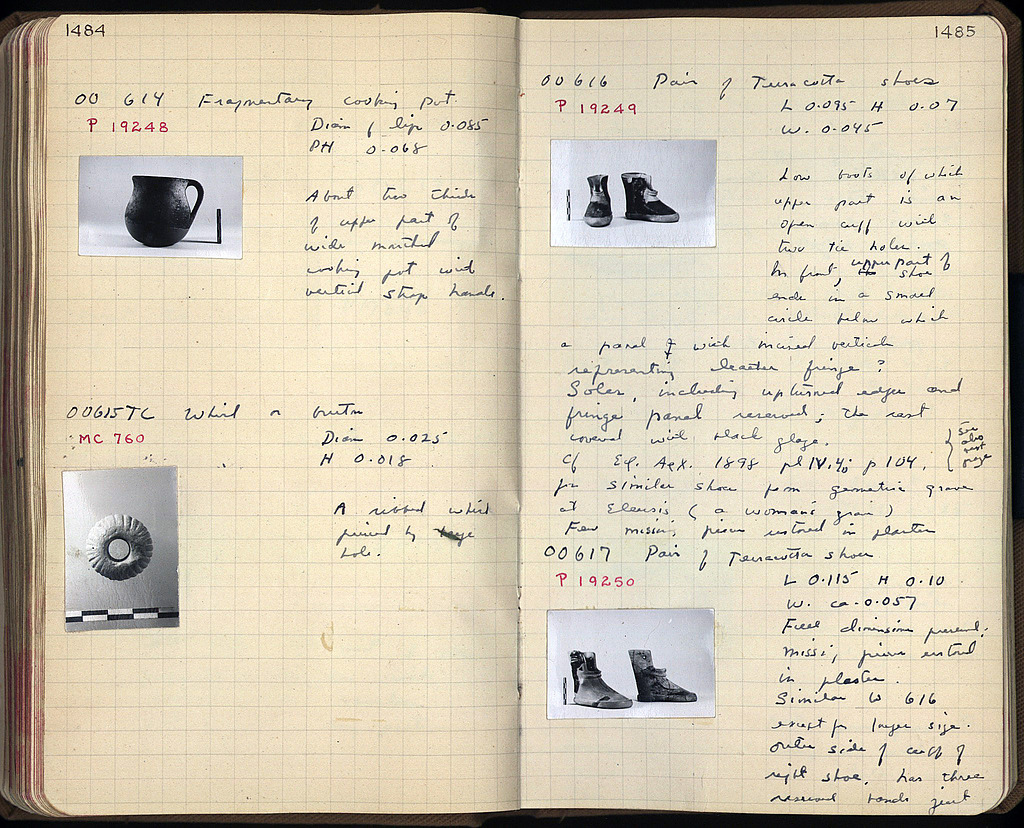 1484
OO 614 Fragmentary cooking pot.
P 19248
Diam of lip 0.085
PH 0.068
About two thirds
of upper part of
wide mouthed
cooking pot with
vertical strap handle.
OO615TC Whirl or button
MC 760
Diam 0.025
H 0.018
A ribbed whirl
pierced by large
hole.
1485
OO616 Pair of Terracotta shoes
P 19249
L 0.095 H 0.07
W. 0.045
Low boots of which
upper part is an
open cuff with
two tie holes.
In front, upper part of shoe
ends in a small
circle below which
a panel with incised verticals
representing leather fringe?
Soles, including upturned edges and
fringe panel reserved; the rest
covered with black glaze.
Cf Εφ. Αρχ. 1898 pl IV, 4; p 104,
for similar shoes from geometric grave
at Eleusis (a woman's grave)
Few missing pieces restored in plaster
See
also
next
page
OO617 Pair of Terracotta shoes
P 19250
L 0.115 H 0.10
W. ca. 0.057
Full dimensions preserved;
missing pieces restored
in plaster.
Similar to 616
except for larger size.
Outer side of cuff of
right shoe, has three
reserved bands just